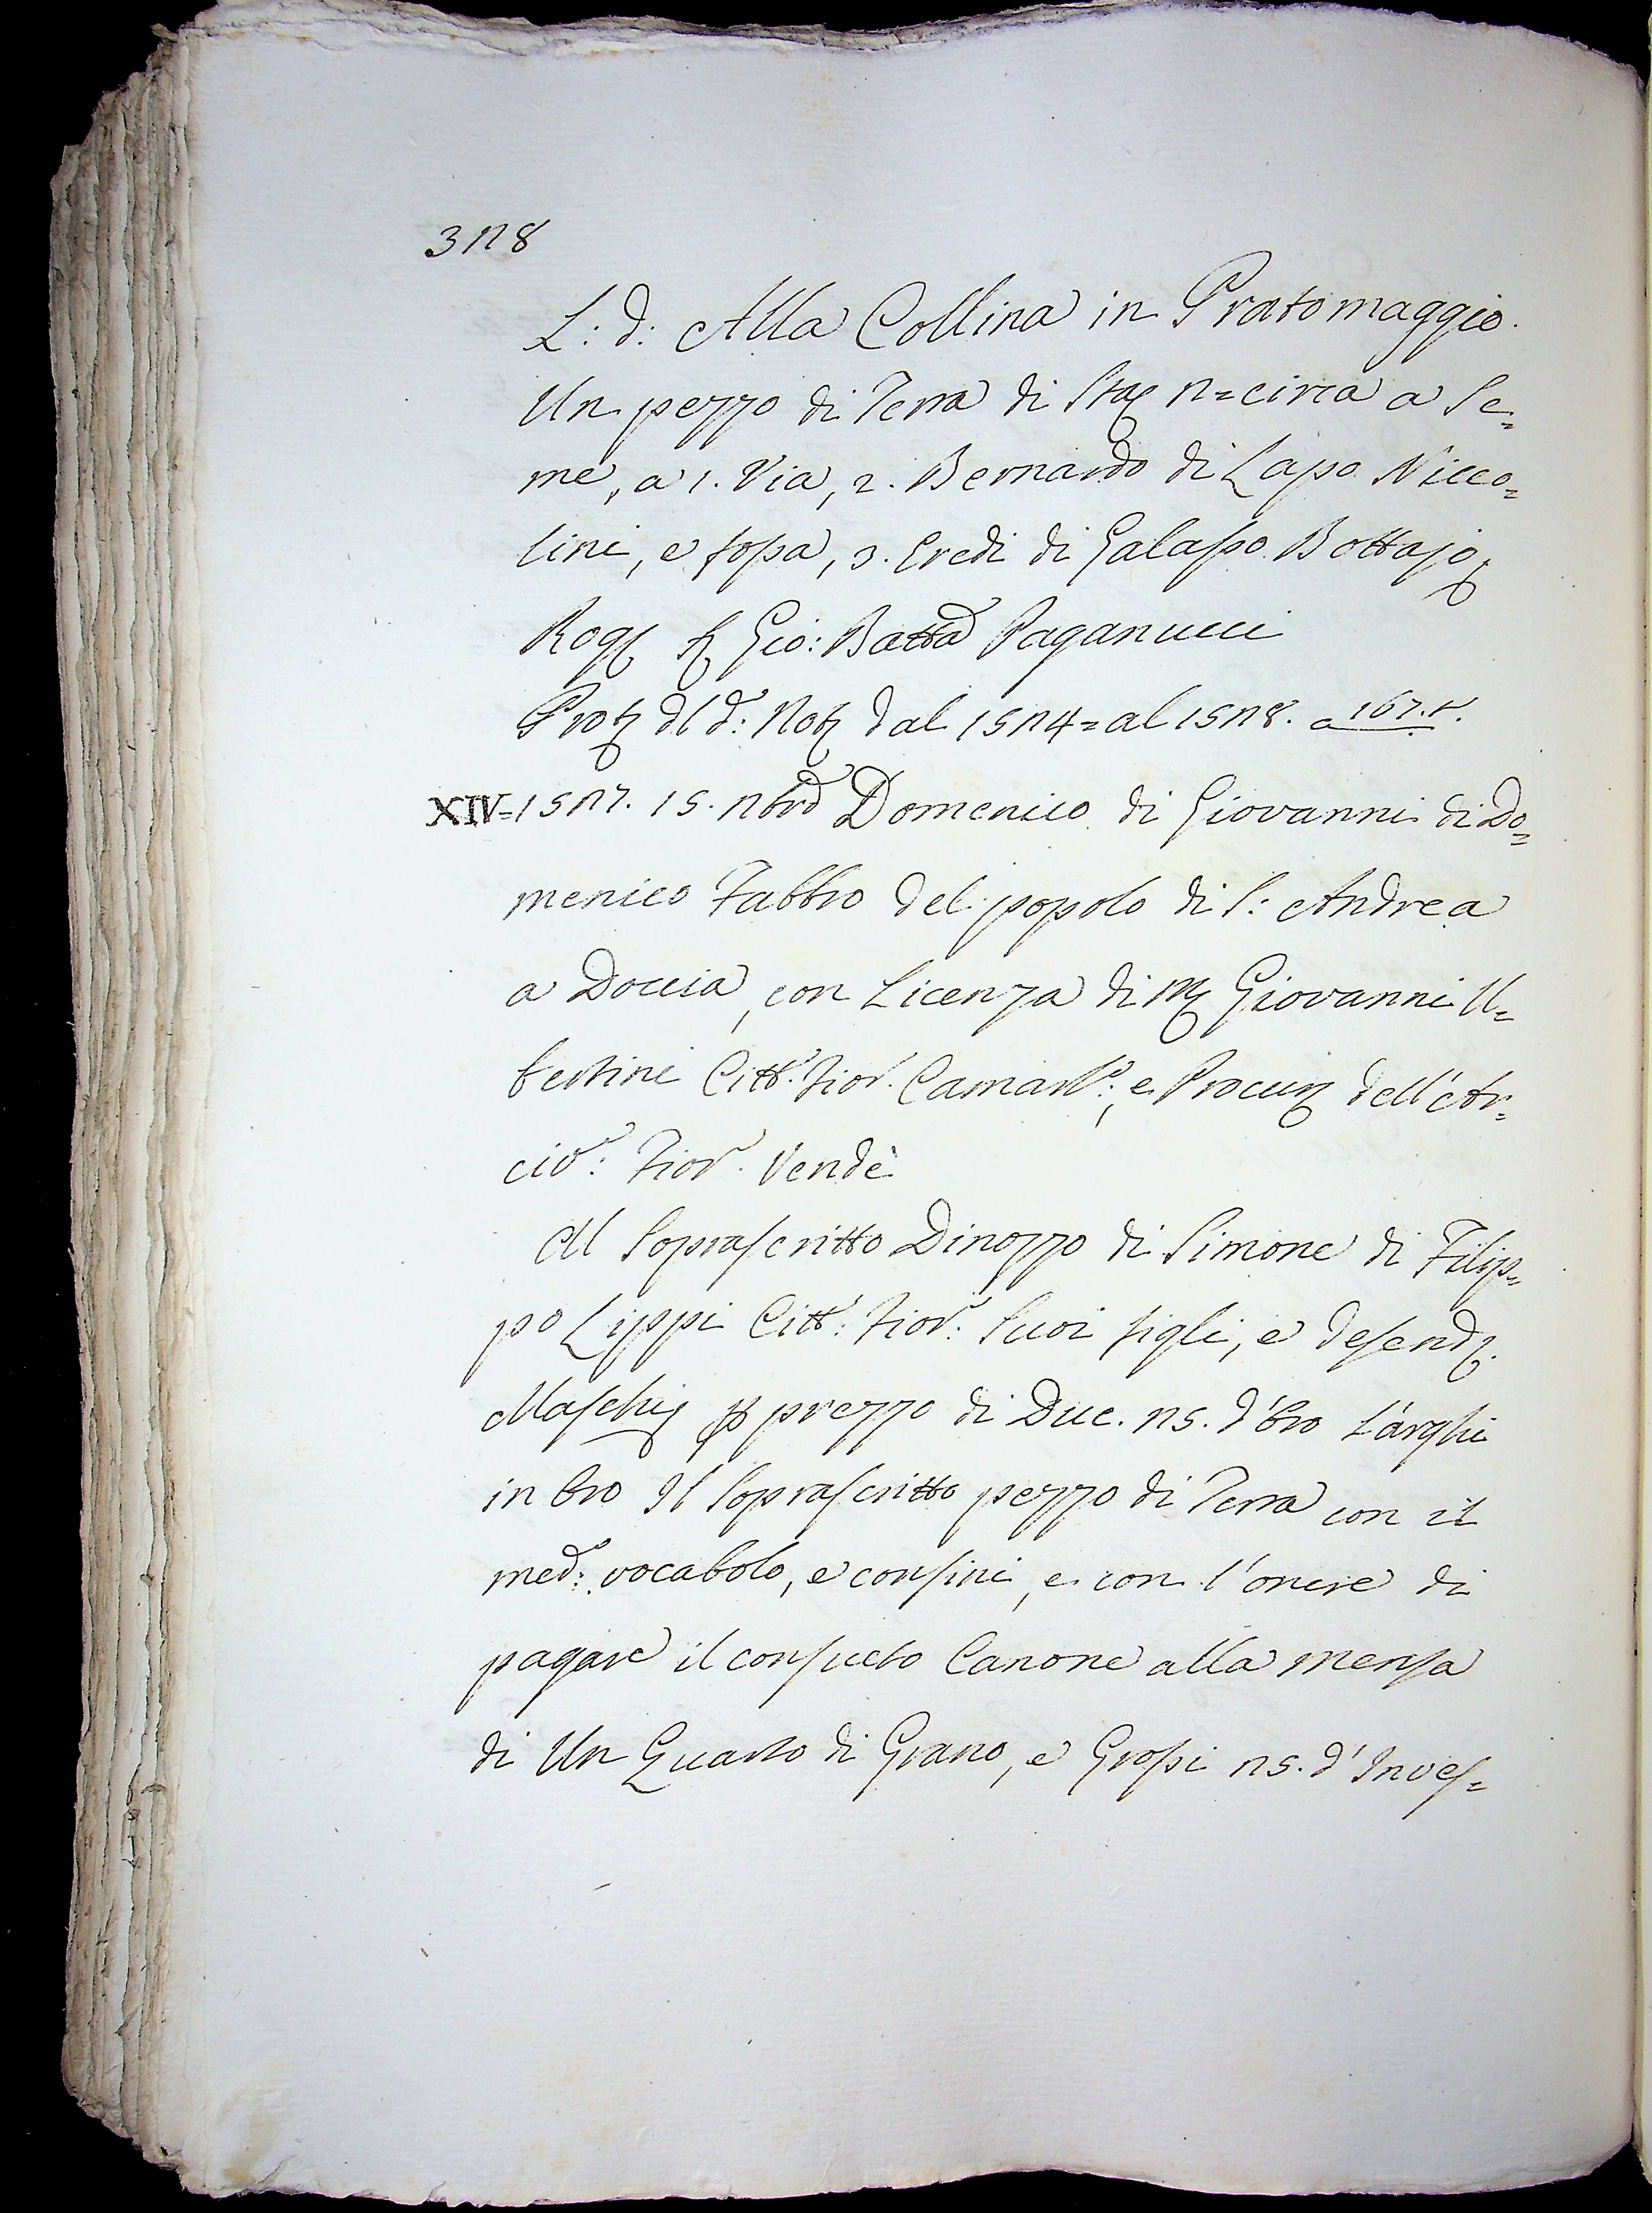 328
L: d: Alla Collina in Pratomaggio.
Un pezzo di Terra di Staj 2= circa a Se=
me, a 1. Via, 2. Bernardo di Lapo Nicco=
lini, e fossa, 3. Eredi di Galasso Bottajo,
Rog. f. Gio: Batta Paganucci
Prot. d'l d: Not. dal 1524= al 1528. a 167.t.
XIV= 1527. 15. Domenico di Giovanni di Do=
menico Fabbro del popolo di S: Andrea
a Doccia, con Licenza di M. Giovanni U=
bertini Citt: Fior. Camarl:, e Procur. dell'Ar=
civ: Fior. Vendè
Al Soprascritto Dinozzo di Simone di Filip=
po Lippi Citt: Fior: Suoi figli, e descend.
Maschi, p prezzo di Duc. 25. d'Oro Larghi
in Oro Il Soprascritto pezzo di Terra con il
med: vocabolo, e confini, e con l'onere di
pagare il consueto Canone alla mensa
di Un Quarto di Grano, e Grossi 25. d'Inves=